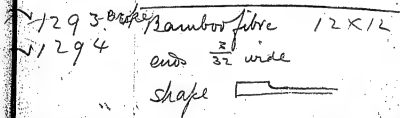 1293 Broke Bamboo fibre 12 X 12
1294 ends 3/32 wide
shape